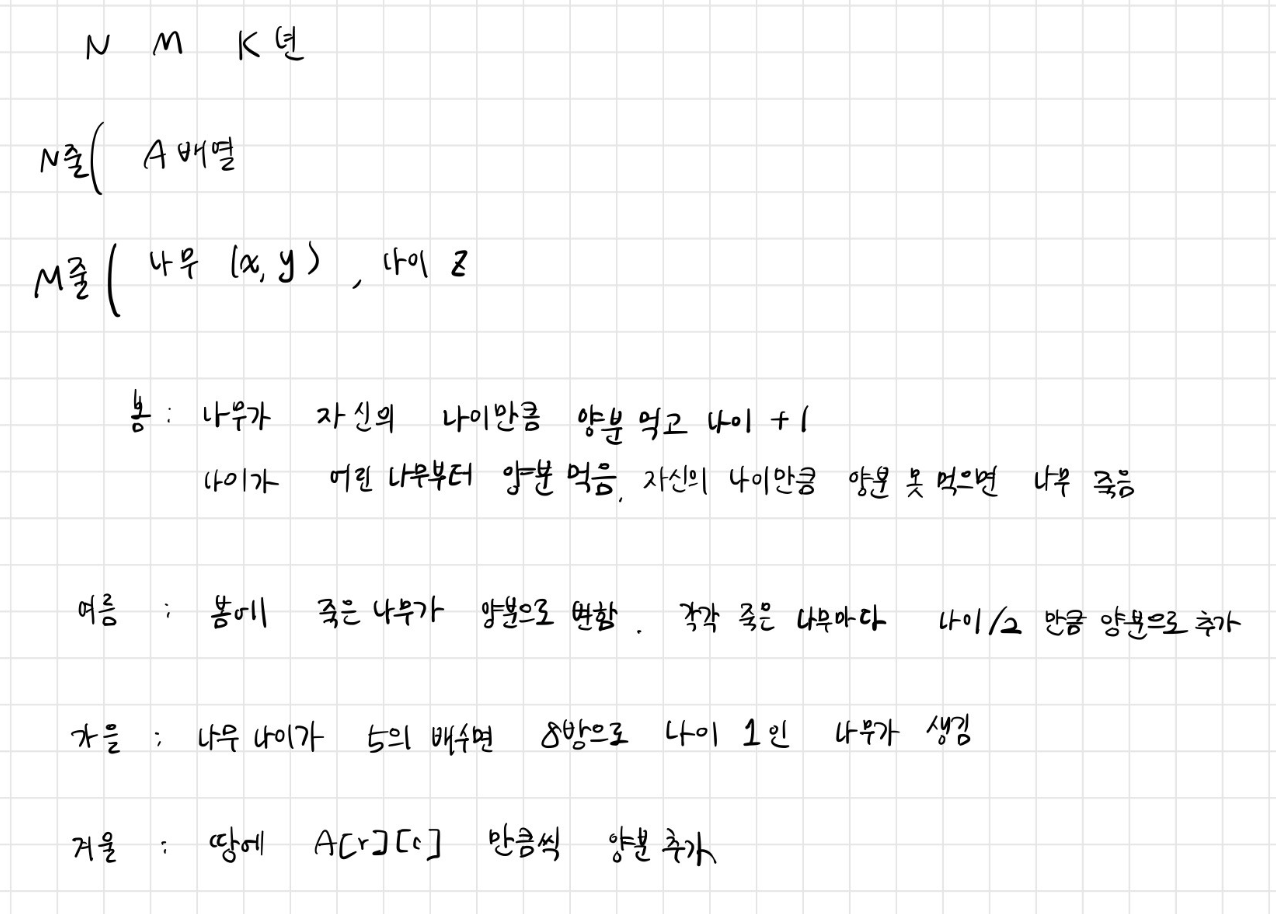 N M K년
N줄( A 배열
M줄( 나무 (x, y) , 나이 z
봄 : 나무가 자신의 나이만큼 양분 먹고 나이 +1
나이가 어린 나무부터 양분 먹음. 자신의 나이만큼 양분 못 먹으면 나무 죽음
여름 : 봄에 죽은 나무가 양분으로 변함. 각각 죽은 나무마다 나이/2 만큼 양분으로 추가
가을 : 나무 나이가 5의 배수면 8방으로 나이 1인 나무가 생김
겨울 : 땅에 A[r][c] 만큼씩 양분 추가